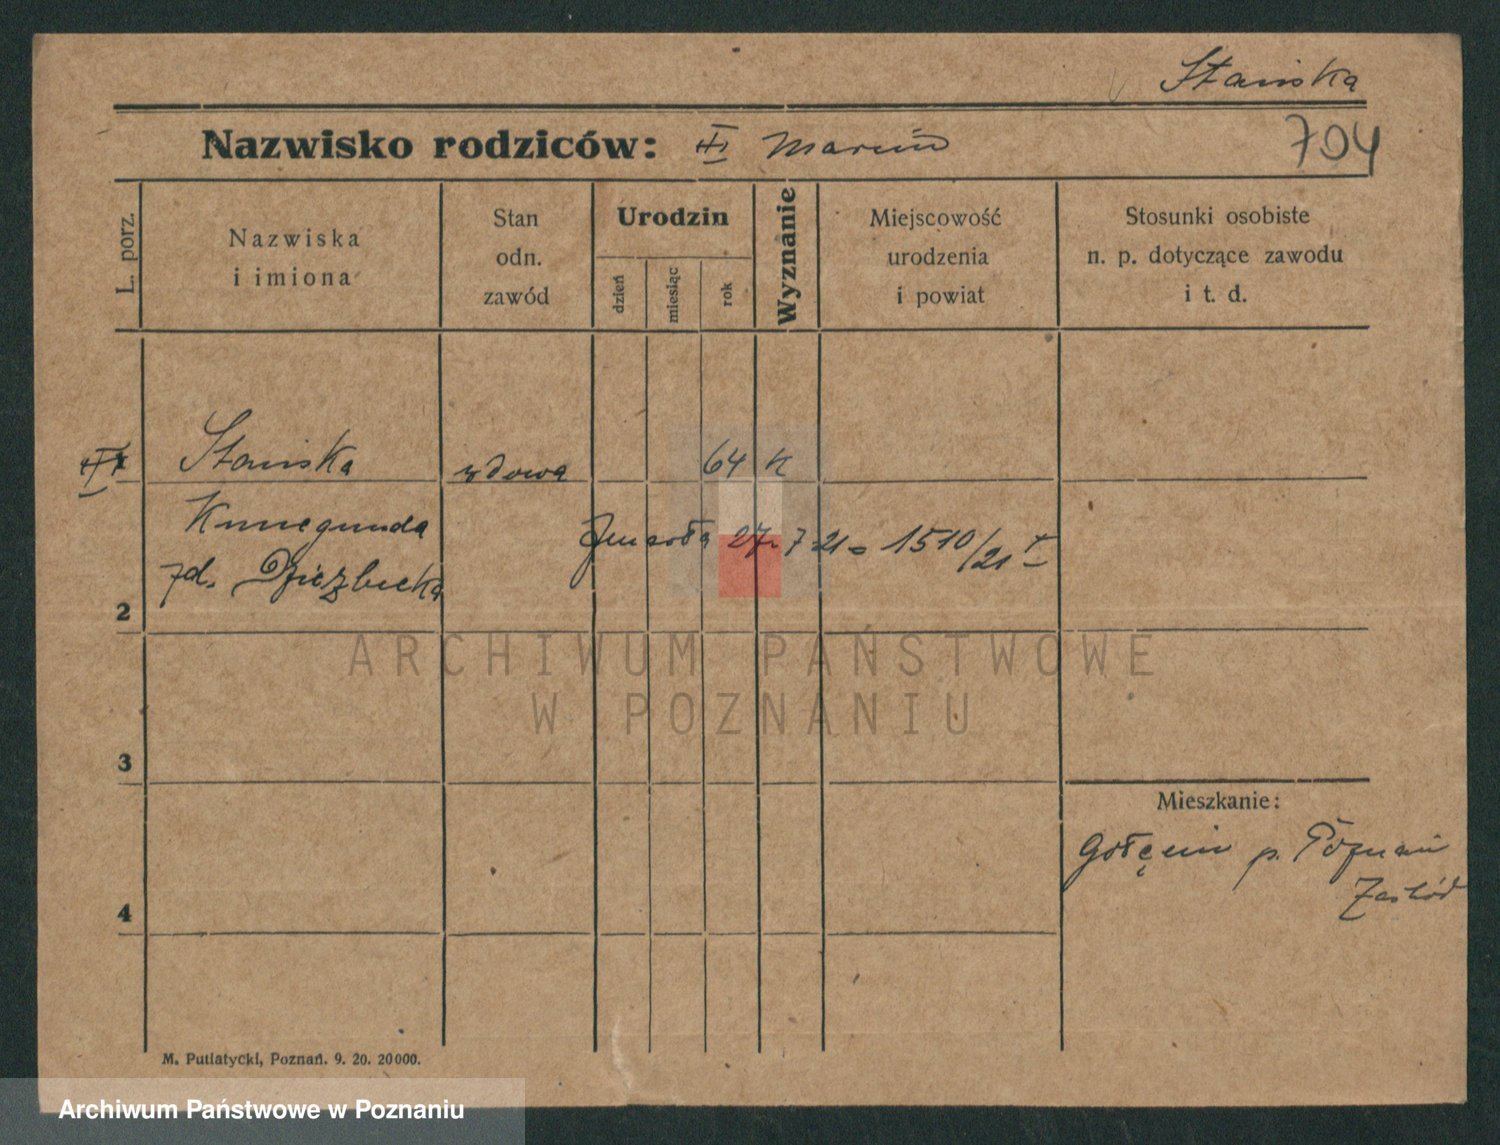 Stańska
Nazwisko rodziców: Marcin
704
L. porz.
Nazwiska
i imiona
Stan
odn.
zawód
Urodzin
dzień
miesiąc
rok
Wyznanie
Miejscowość
urodzenia
i powiat
Stosunki osobiste
n. p. dotyczące zawodu
i t. d.
Stańska wdowa 64 K
Kunegunda
zd.
27 7 21 = 1510/21
2
ARCHIWUM PAŃSTWOWE
W POZNANIU
3
Mieszkanie:
Gołęcin p. Poznań
Zachód
4
M. Putiatycki, Poznań. 9. 20. 20000.
Archiwum Państwowe w Poznaniu